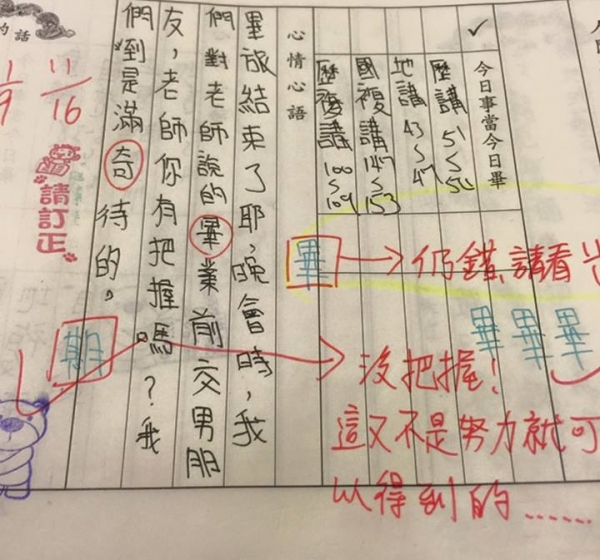 ✓今日事當今日畢
歷講 51~54
地講 43~47
國複講 147~153
歷複講 100~109
心情心語
畢旅結束了耶,晚會時,我
們對老師說的畢業前交男朋
友,老師你有把握嗎?我
們倒是滿奇待的。
畢
仍錯,請看
畢畢畢
沒把握!
這又不是努力就可
以得到的......
11/16
請訂正
的話